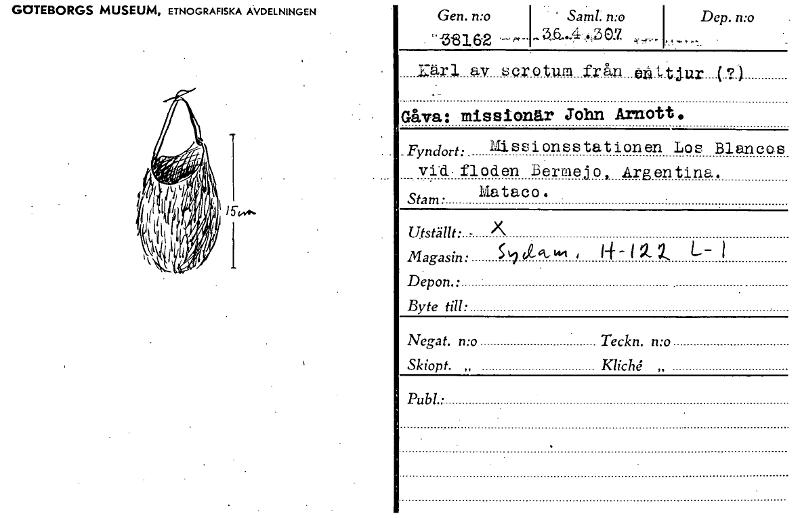 GÖTEBORGS MUSEUM, ETNOGRAFISKA AVDELNINGEN
15cm
Gen. n:o Saml. n:o Dep. n:o
38162 36.4.307
Kärl av scrotum från en tjur (?)
Gåva: missionär John Arnott.
Fyndort: Missionsstationen Los Blancos
vid floden Bermejo, Argentina.
Stam: Mataco.
Utställt: X
Magasin: Sydam. H-122 L-1
Depon.:
Byte till:
Negat. n:o Teckn. n:o
Skiopt. „ Kliché „
Publ.: